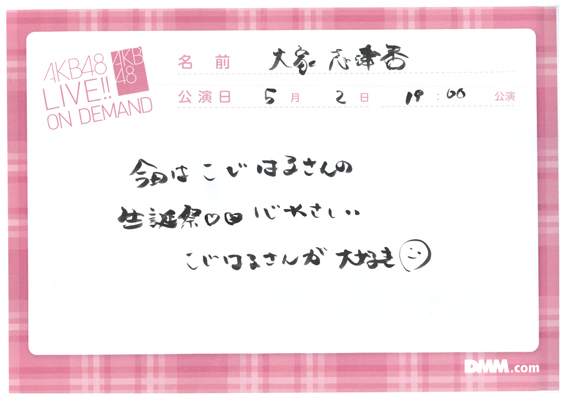 AKB48
LIVE!!
ON DEMAND
AKB
48
名前 大家志津香
公演日 5月2日 19:00 公演
今日はこじはるさんの
生誕祭♡♡ 心やさしい
こじはるさんが大好き
DMM.com